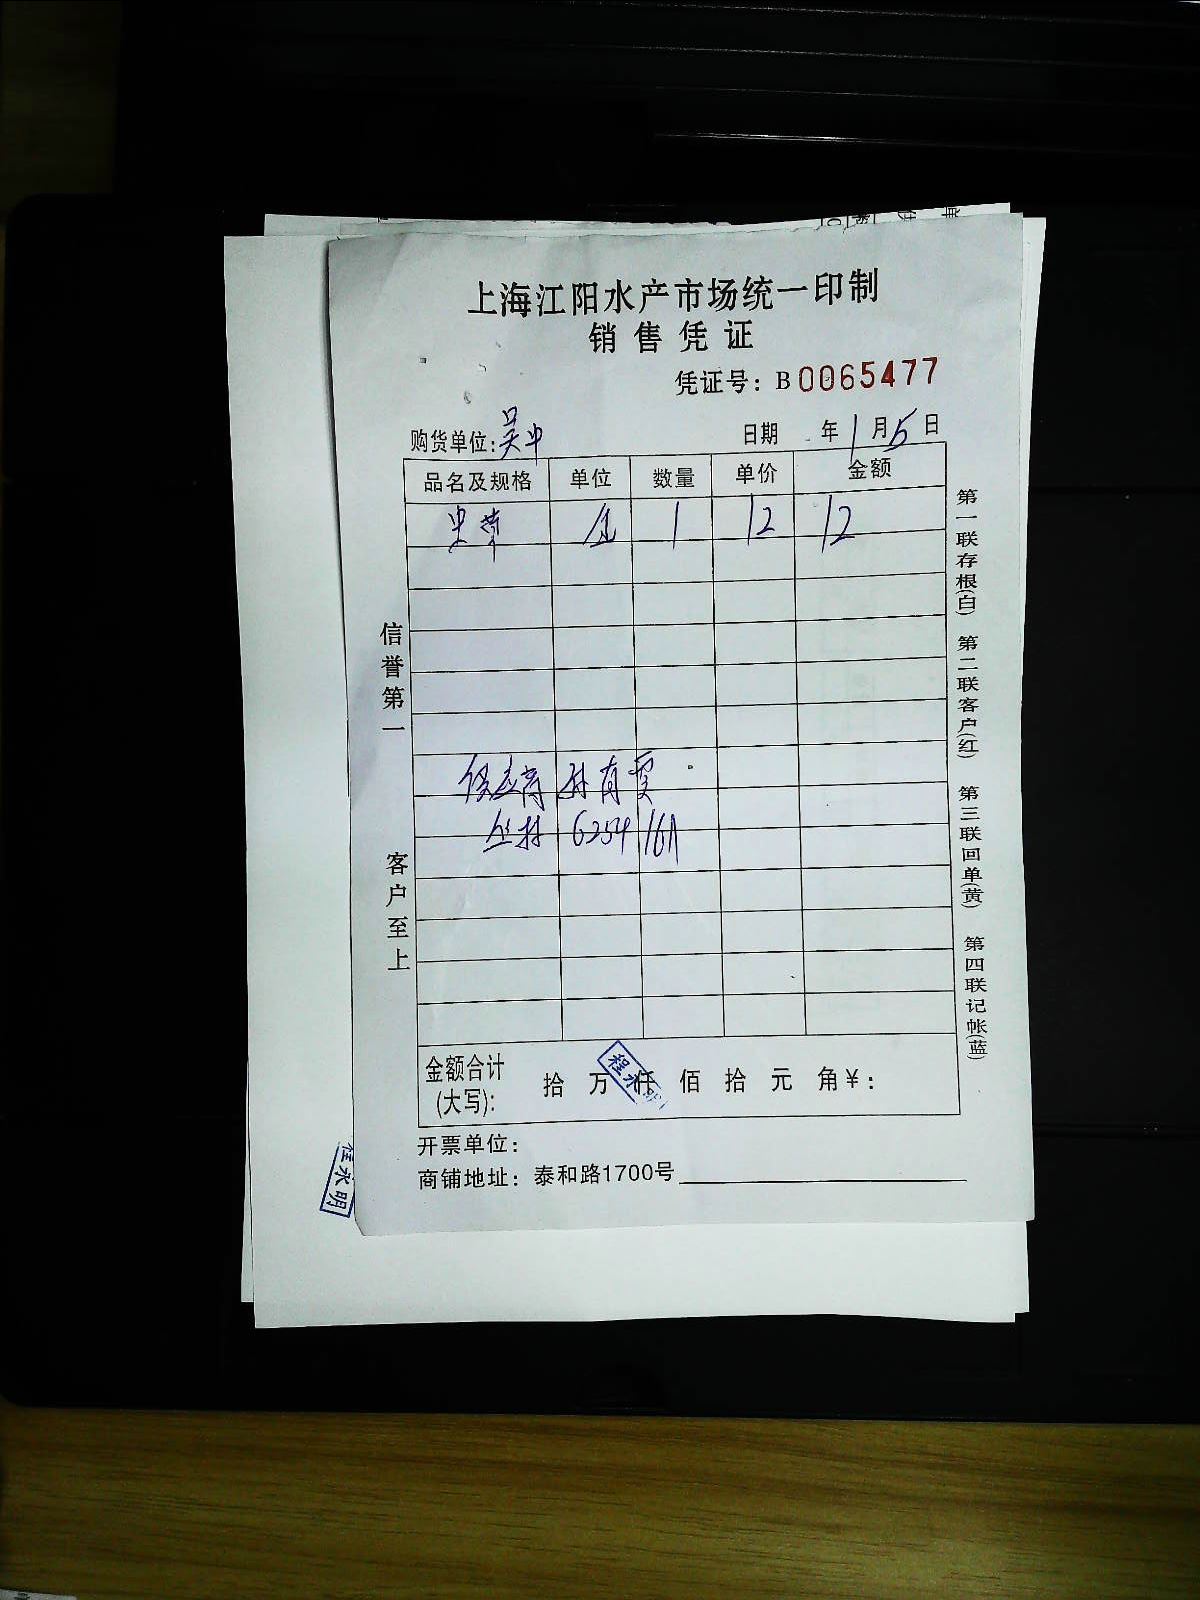 上海江阳水产市场统一印制
销售凭证
凭证号：B0065477
购货单位：吴中
日期 年1月5日
品名及规格 单位 数量 单价 金额
1 12 12
供应商 孙有
6254 16A
信誉第一
客户至上
第一联存根(白) 第二联客户(红) 第三联回单(黄) 第四联记帐(蓝)
金额合计(大写)： 拾 万 仟 佰 拾 元 角 ¥：
程永明
开票单位：
商铺地址：泰和路1700号
程永明